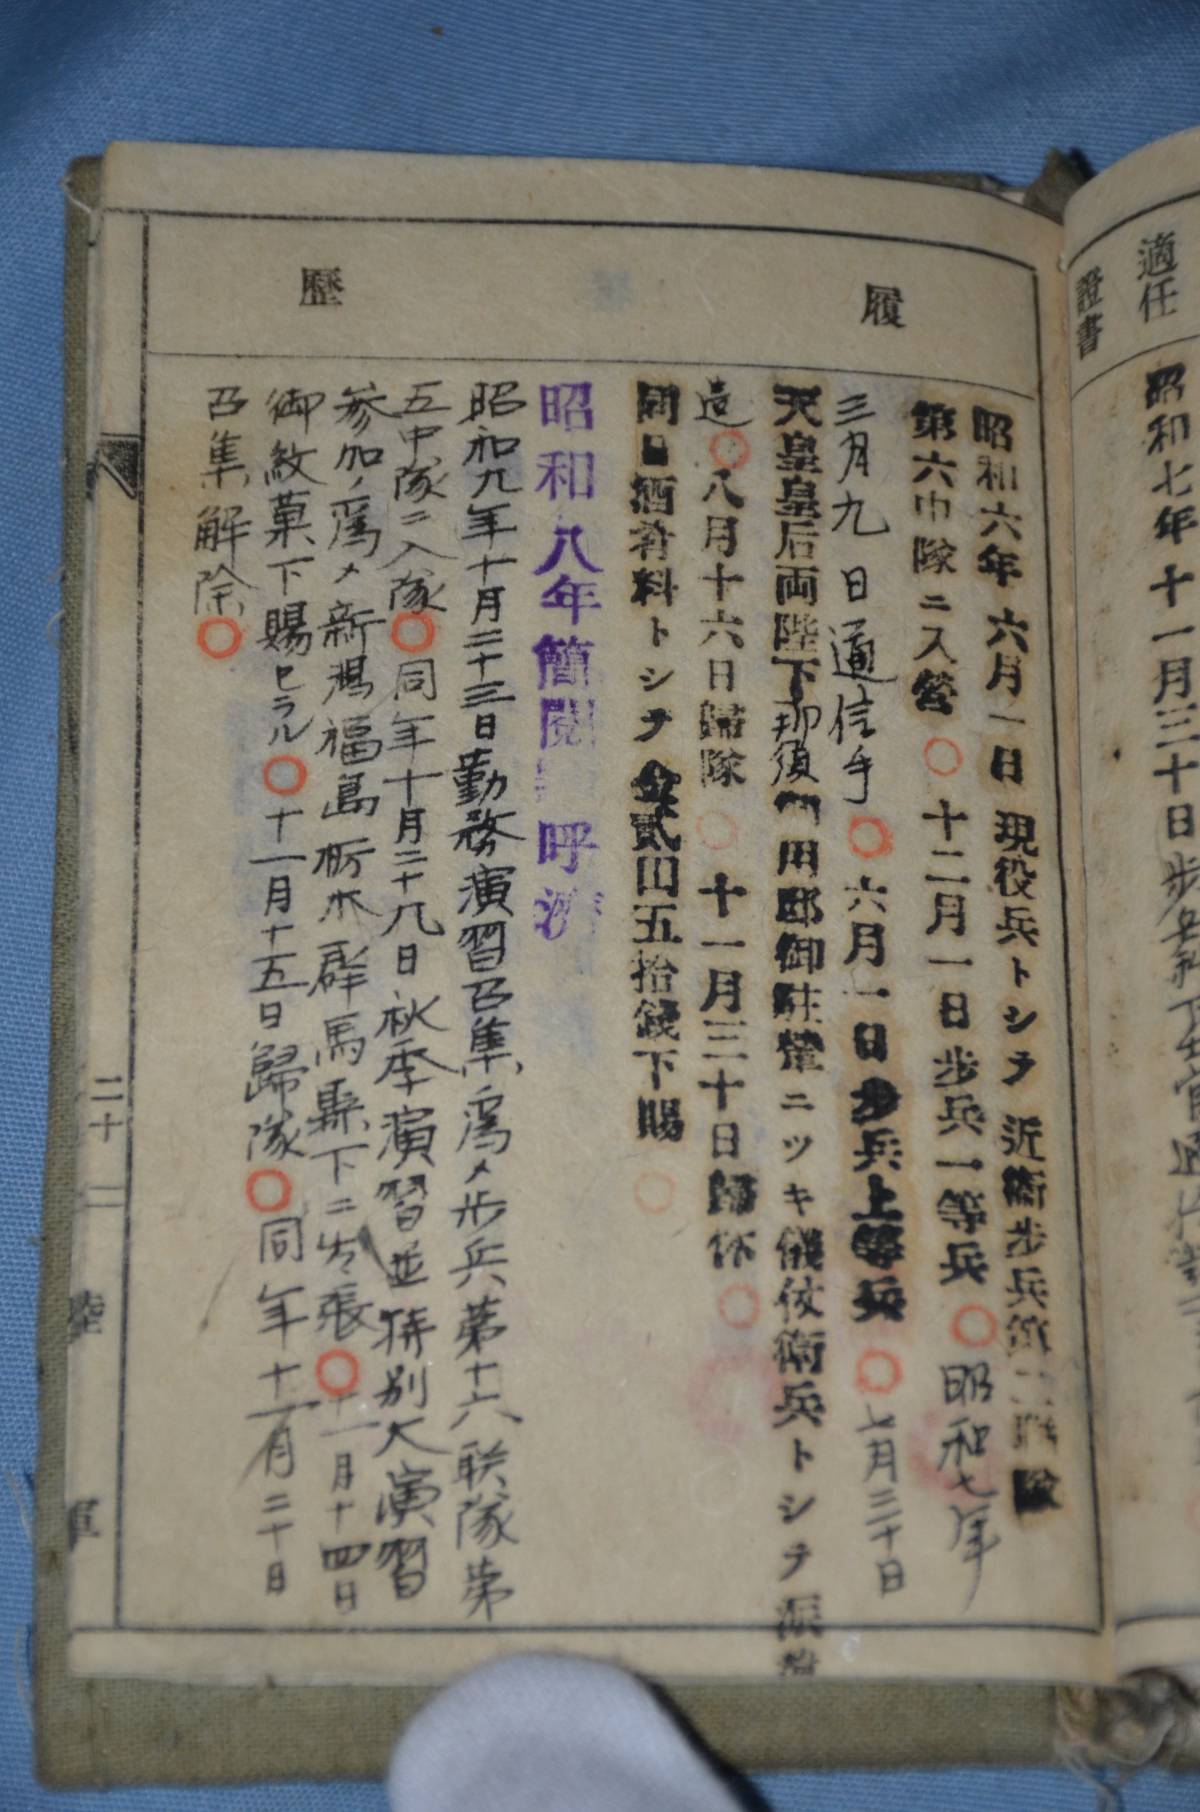 適任
證書
昭和七年十一月三十日步兵科下士官適任證
履歷
昭和六年六月一日現役兵トシテ近衞步兵第二聯隊
第六中隊ニ入營○十二月一日步兵一等兵○昭和七年
三月九日通信手○六月一日步兵上等兵○七月三十日
天皇皇后両陛下那須御用邸御駐輦ニツキ儀仗衞兵トシテ派遣
遣○八月十六日歸隊○十一月三十日歸休○
同日酒肴料トシテ金貳円五拾錢下賜○
昭和八年簡閱點呼濟
昭和九年十月二十三日勤務演習召集ノ爲メ步兵第十六联隊第
五中隊ニ入隊○同年十月二十八日秋季演習並特別大演習
参加ノ爲メ新潟福島栃木群馬縣下ニ出張○十一月十四日
御紋菓下賜セラル○十一月十五日歸隊○同年十一月二十日
召集解除○
二十二
陸軍